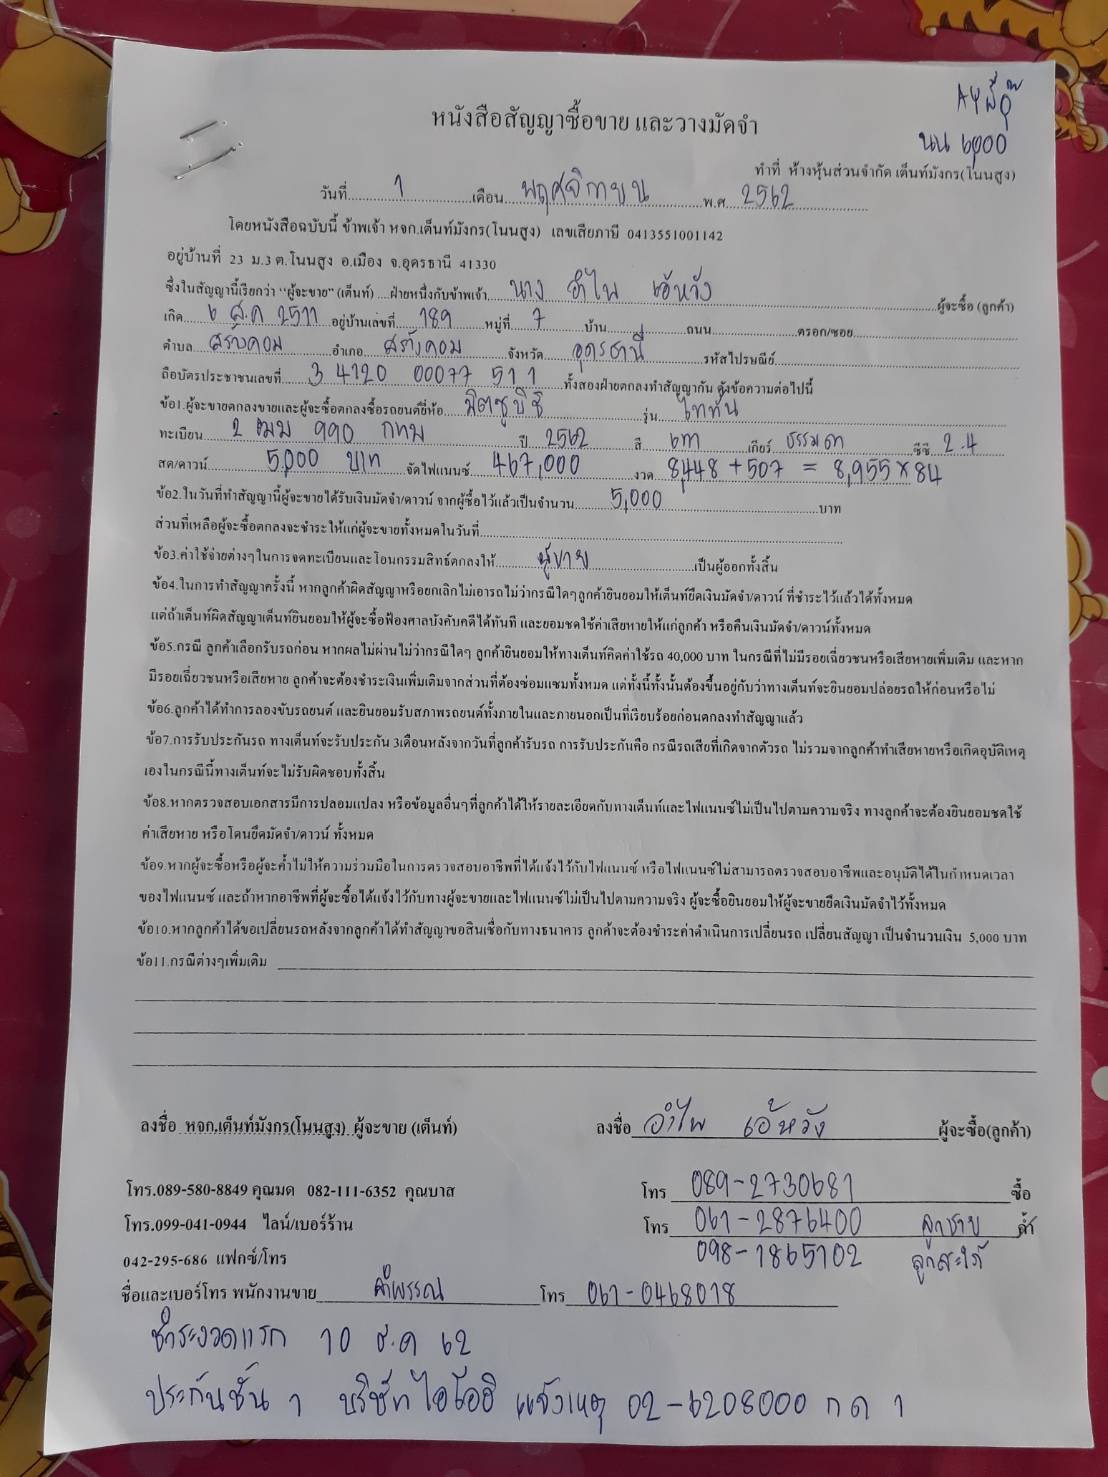 AYมีกุ๊
หนังสือสัญญาซื้อขาย และวางมัดจำ
นน 6,000
ทำที่ ห้างหุ้นส่วนจำกัด เต็นท์มังกร(โนนสูง)
วันที่ 1 เดือน พฤศจิกายน พ.ศ. 2562
โดยหนังสือฉบับนี้ ข้าพเจ้า หจก.เต็นท์มังกร(โนนสูง) เลขเสียภาษี 0413551001142
อยู่บ้านที่ 23 ม.3 ต.โนนสูง อ.เมือง จ.อุดรธานี 41330
ซึ่งในสัญญานี้เรียกว่า "ผู้จะขาย" (เต็นท์) ....ฝ่ายหนึ่งกับข้าพเจ้า นาง อำไพ เอ้หวัง ผู้จะซื้อ (ลูกค้า)
เกิด 6 ส.ค 2511 อยู่บ้านเลขที่ 189 หมู่ที่ 7 บ้าน ถนน ตรอก/ซอย
ตำบล สร้างคอม อำเภอ สร้างคอม จังหวัด อุดรธานี รหัสไปรษณีย์
ถือบัตรประชาชนเลขที่ 3 4120 00077 511 ทั้งสองฝ่ายตกลงทำสัญญากัน ดังข้อความต่อไปนี้
ข้อ1.ผู้จะขายตกลงขายและผู้จะซื้อตกลงซื้อรถยนต์ยี่ห้อ มิตซูบิชิ รุ่น ไททัน
ทะเบียน 2 ฒฒ 990 กทม ปี 2562 สี เทา เกียร์ ธรรมดา ซีซี 2.4
สด/ดาวน์ 5,000 บาท จัดไฟแนนซ์ 467,000 งวด 8,448 + 507 = 8,955 x 84
ข้อ2.ในวันที่ทำสัญญานี้ผู้จะขายได้รับเงินมัดจำ/ดาวน์ จากผู้ซื้อไว้แล้วเป็นจำนวน 5,000 บาท
ส่วนที่เหลือผู้จะซื้อตกลงจะชำระให้แก่ผู้จะขายทั้งหมดในวันที่
ข้อ3.ค่าใช้จ่ายต่างๆในการจดทะเบียนและโอนกรรมสิทธ์ตกลงให้ ผู้ขาย เป็นผู้ออกทั้งสิ้น
ข้อ4.ในการทำสัญญาครั้งนี้ หากลูกค้าผิดสัญญาหรือยกเลิกไม่เอารถไม่ว่ากรณีใดๆลูกค้ายินยอมให้เต็นท์ยึดเงินมัดจำ/ดาวน์ ที่ชำระไว้แล้วได้ทั้งหมด
แต่ถ้าเต็นท์ผิดสัญญาเต็นท์ยินยอมให้ผู้จะซื้อฟ้องศาลบังคับคดีได้ทันที และยอมชดใช้ค่าเสียหายให้แก่ลูกค้า หรือคืนเงินมัดจำ/ดาวน์ทั้งหมด
ข้อ5.กรณี ลูกค้าเลือกรับรถก่อน หากผลไม่ผ่านไม่ว่ากรณีใดๆ ลูกค้ายินยอมให้ทางเต็นท์คิดค่าใช้รถ 40,000 บาท ในกรณีที่ไม่มีรอยเฉี่ยวชนหรือเสียหายเพิ่มเติม และหาก
มีรอยเฉี่ยวชนหรือเสียหาย ลูกค้าจะต้องชำระเงินเพิ่มเติมจากส่วนที่ต้องซ่อมแซมทั้งหมด แต่ทั้งนี้ทั้งนั้นต้องขึ้นอยู่กับว่าทางเต็นท์จะยินยอมปล่อยรถให้ก่อนหรือไม่
ข้อ6.ลูกค้าได้ทำการลองขับรถยนต์ และยินยอมรับสภาพรถยนต์ทั้งภายในและภายนอกเป็นที่เรียบร้อยก่อนตกลงทำสัญญาแล้ว
ข้อ7.การรับประกันรถ ทางเต็นท์จะรับประกัน 3เดือนหลังจากวันที่ลูกค้ารับรถ การรับประกันคือ กรณีรถเสียที่เกิดจากตัวรถ ไม่รวมจากลูกค้าทำเสียหายหรือเกิดอุบัติเหตุ
เองในกรณีนี้ทางเต็นท์จะไม่รับผิดชอบทั้งสิ้น
ข้อ8.หากตรวจสอบเอกสารมีการปลอมแปลง หรือข้อมูลอื่นๆที่ลูกค้าได้ให้รายละเอียดกับทางเต็นท์และไฟแนนซ์ไม่เป็นไปตามความจริง ทางลูกค้าจะต้องยินยอมชดใช้
ค่าเสียหาย หรือโดนยึดมัดจำ/ดาวน์ ทั้งหมด
ข้อ9.หากผู้จะซื้อหรือผู้จะค้ำไม่ให้ความร่วมมือในการตรวจสอบอาชีพที่ได้แจ้งไว้กับไฟแนนซ์ หรือไฟแนนซ์ไม่สามารถตรวจสอบอาชีพและอนุมัติได้ในกำหนดเวลา
ของไฟแนนซ์ และถ้าหากอาชีพที่ผู้จะซื้อได้แจ้งไว้กับทางผู้จะขายและไฟแนนซ์ไม่เป็นไปตามความจริง ผู้จะซื้อยินยอมให้ผู้จะขายยึดเงินมัดจำไว้ทั้งหมด
ข้อ10.หากลูกค้าได้ขอเปลี่ยนรถหลังจากลูกค้าได้ทำสัญญาขอสินเชื่อกับทางธนาคาร ลูกค้าจะต้องชำระค่าดำเนินการเปลี่ยนรถ เปลี่ยนสัญญา เป็นจำนวนเงิน 5,000 บาท
ข้อ11.กรณีต่างๆเพิ่มเติม
ลงชื่อ หจก.เต็นท์มังกร(โนนสูง) ผู้จะขาย (เต็นท์) ลงชื่อ อำไพ เอ้หวัง ผู้จะซื้อ(ลูกค้า)
โทร.089-580-8849 คุณมด 082-111-6352 คุณบาส โทร 089-2730681 ซื้อ
โทร.099-041-0944 ไลน์/เบอร์ร้าน โทร 061-2876400 ลูกชาย ค้ำ
042-295-686 แฟกซ์/โทร 098-1865102 ลูกสะใภ้
ชื่อและเบอร์โทร พนักงานขาย คำพรรณ โทร 061-0468018
ชำระงวดแรก 10 ธ.ค 62
ประกันชั้น 1 บริษัทไอโออิ แจ้งเหตุ 02-6208000 กด 1